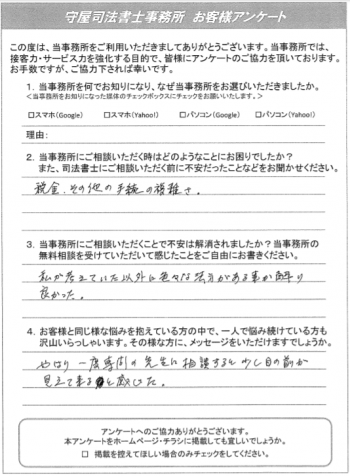 守屋司法書士事務所　お客様アンケート
この度は、当事務所をご利用いただきましてありがとうございます。当事務所では、
接客力・サービス力を強化する目的で、皆様にアンケートのご協力を頂いております。
お手数ですが、ご協力下されば幸いです。
1. 当事務所を何でお知りになり、なぜ当事務所をお選びいただきましたか。
＜当事務所をお知りになった媒体のチェックボックスにチェックをお願いいたします。＞
□スマホ(Google)　□スマホ(Yahoo!)　□パソコン(Google)　□パソコン(Yahoo!)
理由:
2. 当事務所にご相談いただく時はどのようなことにお困りでしたか？
また、司法書士にご相談いただく前に不安だったことなどをお聞かせください。
税金、その他の手続の複雑さ。
3. 当事務所にご相談いただくことで不安は解消されましたか？当事務所の
無料相談を受けていただいて感じたことをご自由にお書きください。
私が考えていた以外に色々な方法がある事が解り
良かった。
4. お客様と同じ様な悩みを抱えている方の中で、一人で悩み続けている方も
沢山いらっしゃいます。その様な方に、メッセージをいただけますでしょうか。
やはり一度専門の先生に相談すると少し目の前が
見えて来ると感じた。
アンケートへのご協力ありがとうございます。
本アンケートをホームページ・チラシに掲載しても宜しいでしょうか。
□ 掲載を控えてほしい場合のみチェックをしてください。